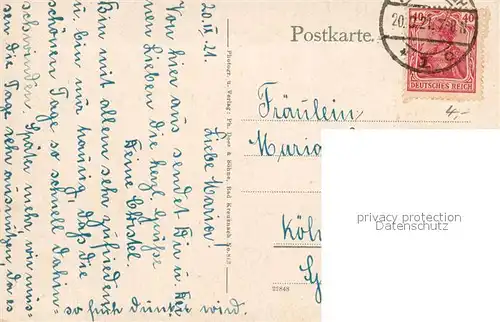 20.IX.21.
Liebe Mario!
Von hier aus sendet Dir u. Dei-
nen Lieben die herzl. Grüße
Deine Christel.
Bin mit allem sehr zufrieden
u. bin nur traurig, daß die
schönen Tage so schnell dahin-
schwinden. Später mehr, wir müs-
sen die Tage sehr ausnützen, da es
so früh dunkel wird.
Photogr. u. Verlag: Ph. & Söhne, Bad Kreuznach No. 812
Postkarte.
20.9.21. 7-8 N.
40 40
DEUTSCHES REICH
4,-
Fräulein
Mario
Köln
22848
privacy protection
Datenschutz